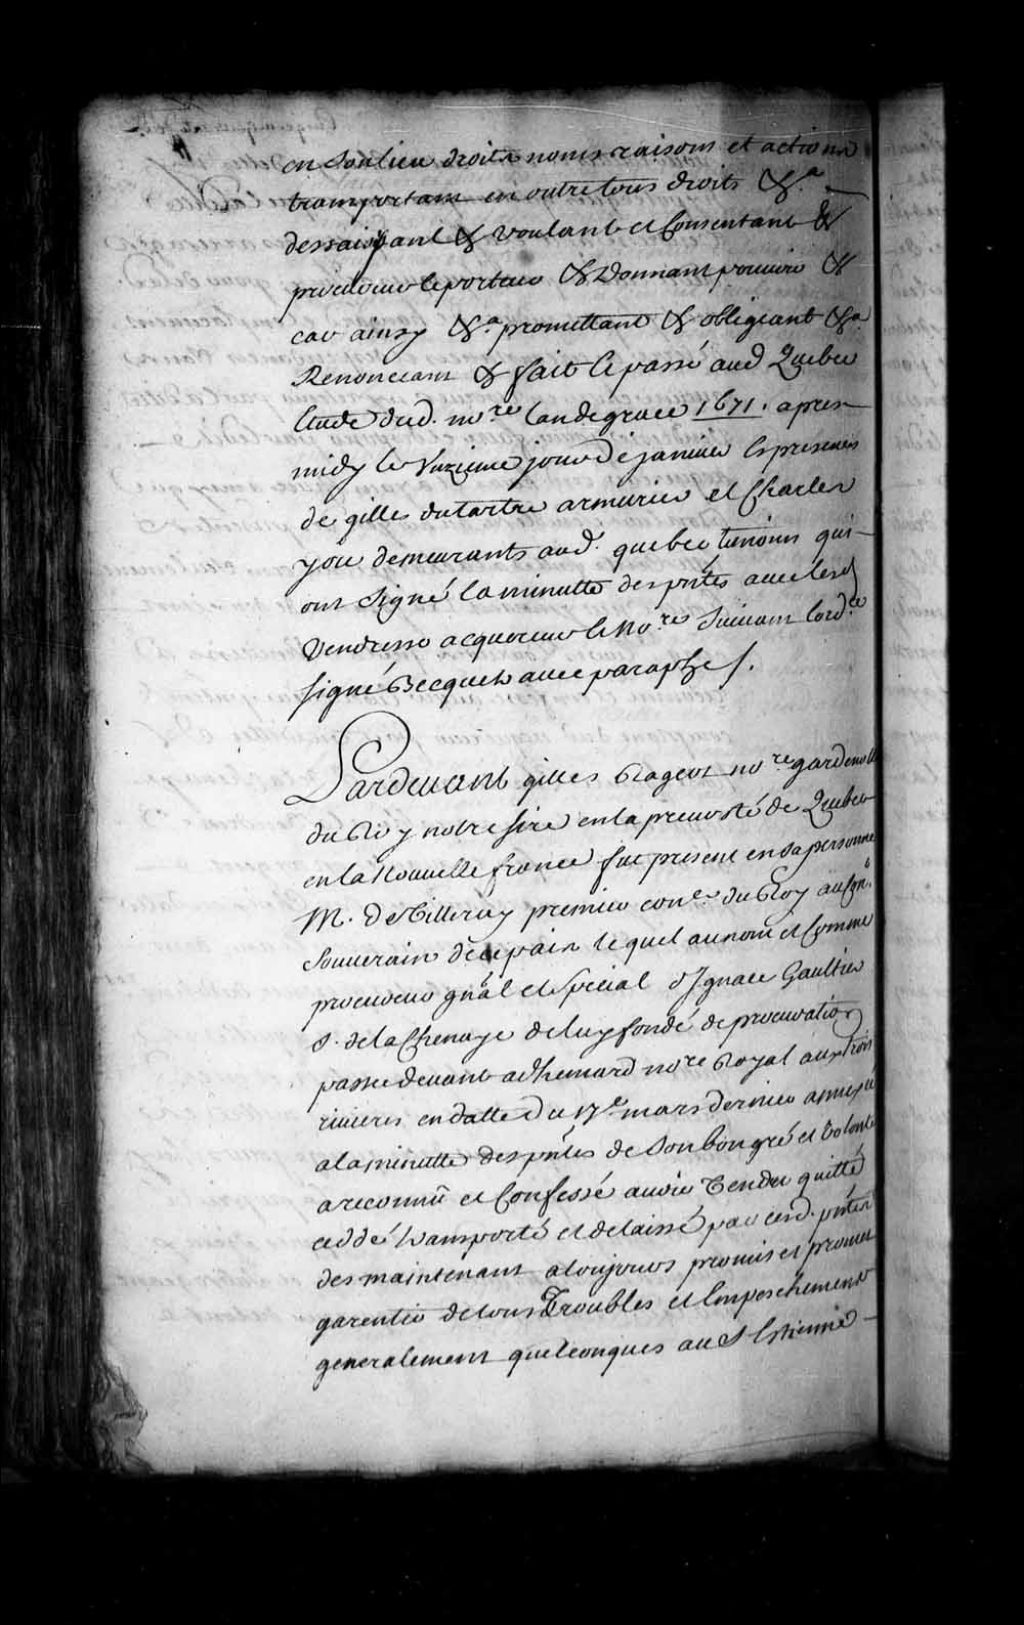 en son lieu droits noms raisons et actions
transportant en outre tous droits &.a
dessaisissant & voulant et consentant &
procureur le porteur & donnant pouvoir &
car ainsy &.a promettant & obligeant &a
Renonceant & fait et passé aud Quebec
Etude dud. no.re Lan de grace 1671. apres
midy le Unzieme jour de janvier Es presences
de gilles dutartre armurier et Charles
you demeurants aud. quebec temoins qui
ont signé la minutte des pntes avec lesd
Vendresse acquereur et No.re suivant lord.ce
signé Becquet avec paraphe /.
Pardevant gilles Rageot no.re gardenotte
du Roy notre sire en la prevosté de Quebec
en la Nouvelle france fut present en sa personne
M. De Villeray premier con.er du Roy au Con.l
Souverain de ce pais lequel au nom et Comme
procureur gnãl et special d'Ignace Gaultier
s. de la Chenaye de luy fondé de procuration
passée devant adhemard no.re Royal aux trois
rivieres en datte du 17.e mars dernier annexée
a la minutte des pntes de son bon gré et volonté
a reconnü et Confessé avoir Vendu quitté
ceddé transporté et delaissé par cesd. pntes
des maintenant a toujours promis et promet
garentir de tous Troubles et Empeschements
generalement quelconques au S Estienne